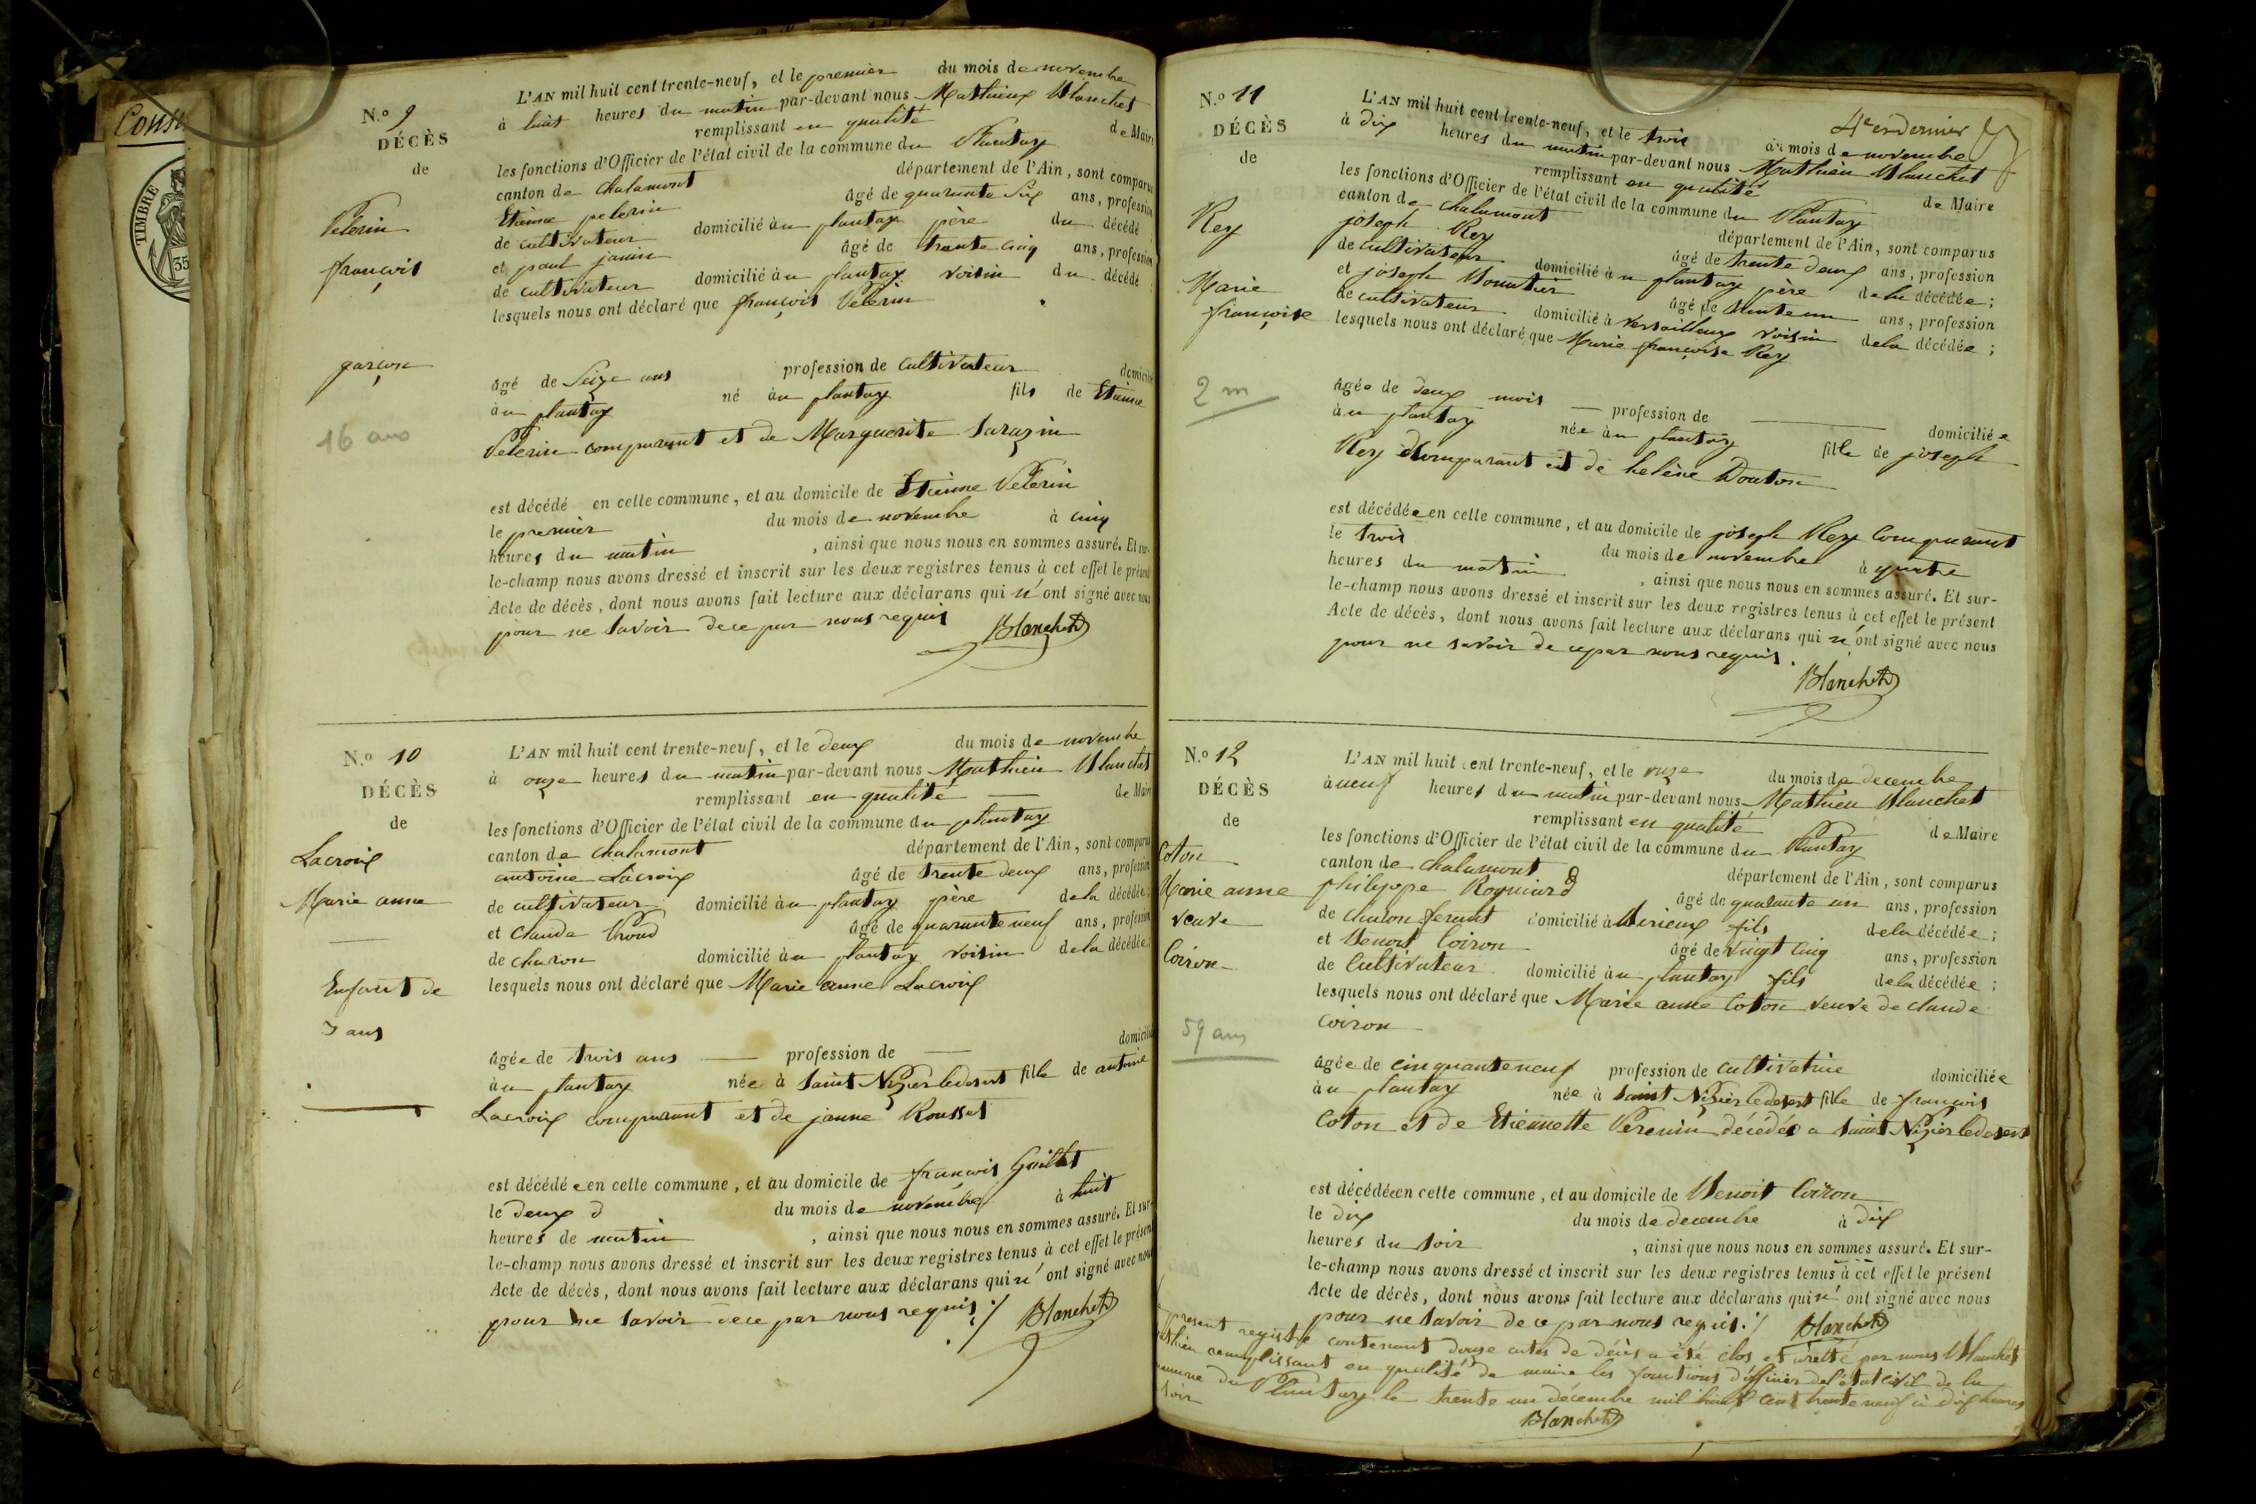 Consu
TIMBRE
35
N.o 9
DÉCÈS
de
Pélerin
françois
garçon
16 ans
L'AN mil huit cent trente-neuf, et le premier du mois de novembre
à huit heures du matin par-devant nous Mathieux Blanchet
remplissant en qualité de Maire
les fonctions d'Officier de l'état civil de la commune du Plantay
canton de chalamont département de l'Ain, sont comparus
Etienne pelerin âgé de quarante six ans, profession
de cultivateur domicilié àu plantay père du décédé ;
et paul janin âgé de trante cinq ans, profession
de cultivateur domicilié àu plantay voisin du décédé ;
lesquels nous ont déclaré que françois Pélerin
âgé de seize ans profession de cultivateur domicilié
àu plantay né àu plantay fils de Etienne
Pélerin comparant et de Marguerite Sarazin
est décédé en cette commune, et au domicile de Etienne Pélerin
le premier du mois de novembre à cinq
heures du matin, ainsi que nous nous en sommes assuré. Et sur-
le-champ nous avons dressé et inscrit sur les deux registres tenus à cet effet le présent
Acte de décès, dont nous avons fait lecture aux déclarans qui n'ont signé avec nous
pour ne savoir de ce par nous requis Blanchet
N.o 10
DÉCÈS
de
Lacroix
Marie anne
Enfant de
3 ans
L'AN mil huit cent trente-neuf, et le deux du mois de novembre
à onze heures du matin par-devant nous Mathieu Blanchet
remplissant en qualité de Maire
les fonctions d'Officier de l'état civil de la commune du plantay
canton de chalamont département de l'Ain, sont comparus
antoine Lacroix âgé de trente deux ans, profession
de cultivateur domicilié àu plantay père de la décédée ;
et Claude âgé de quarante neuf ans, profession
de charon domicilié àu plantay voisin de la décédée
lesquels nous ont déclaré que Marie anne Lacroix
âgée de trois ans profession de domicilié
àu plantay née à saint Nizier ledesert fille de antoine
Lacroix comparant et de janne Rousset
est décédée en cette commune, et au domicile de francois Guillet
le deux d du mois de novembre à huit
heures de matin, ainsi que nous nous en sommes assuré. Et sur-
le-champ nous avons dressé et inscrit sur les deux registres tenus à cet effet le présent
Acte de décès, dont nous avons fait lecture aux déclarans qui n'ont signé avec nous
pour ne savoir de ce par nous requis ./ Blanchet
N.o 11
DÉCÈS
de
Rey
Marie
françoise
2 m
4e et dernier
L'AN mil huit cent trente-neuf, et le trois du mois de novembre
à dix heures du matin par-devant nous Mathieu Blanchet
remplissant en qualité de Maire
les fonctions d'Officier de l'état civil de la commune du Plantay
canton de chalamont département de l'Ain, sont comparus
joseph Rey âgé de trente deux ans, profession
de cultivateur domicilié àu plantay père de la décédée ;
et joseph Mountier âgé de trente un ans, profession
de cultivateur domicilié à versailleux voisin de la décédée ;
lesquels nous ont déclaré que Marie françoise Rey
âgée de deux mois profession de domiciliée
àu plantay née àu plantay fille de joseph
Rey comparant et de helène Douton
est décédée en cette commune, et au domicile de joseph Rey comparant
le trois du mois de novembre à quatre
heures du matin, ainsi que nous nous en sommes assuré. Et sur-
le-champ nous avons dressé et inscrit sur les deux registres tenus à cet effet le présent
Acte de décès, dont nous avons fait lecture aux déclarans qui n'ont signé avec nous
pour ne savoir de ce par nous requis.
Blanchet
N.o 12
DÉCÈS
de
Coton
Marie anne
veuve
Coiron
59 ans
L'AN mil huit cent trente-neuf, et le onze du mois de decembre
à neuf heures du matin par-devant nous Mathieu Blanchet
remplissant en qualité de Maire
les fonctions d'Officier de l'état civil de la commune du Plantay
canton de chalamont département de l'Ain, sont comparus
philippe âgé de quarante un ans, profession
de charon ferant domicilié à Birieux fils de la décédée ;
et Benoit Coiron âgé de vingt cinq ans, profession
de cultivateur domicilié àu plantay fils de la décédée ;
lesquels nous ont déclaré que Marie anne Coton veuve de claude
coiron
âgée de cinquante neuf profession de cultivatrice domiciliée
àu plantay née à saint Nizier ledesert fille de françois
Coton et de Etiennette Perenin décédés a saint Nizier ledesert
est décédée en cette commune, et au domicile de Benoit Coiron
le dix du mois de decembre à dix
heures du soir, ainsi que nous nous en sommes assuré. Et sur-
le-champ nous avons dressé et inscrit sur les deux registres tenus à cet effet le présent
Acte de décès, dont nous avons fait lecture aux déclarans qui n'ont signé avec nous
pour ne savoir de ce par nous requis ./ Blanchet
present registre contenant douze actes de décès a été clos et arretté par nous Blanchet
Mathieu remplissant en qualité de maire les fonctions d'officier de l'état civil de la
commune du Plantay le trente un décembre mil huit cent trente neuf à dix heures
soir
Blanchet